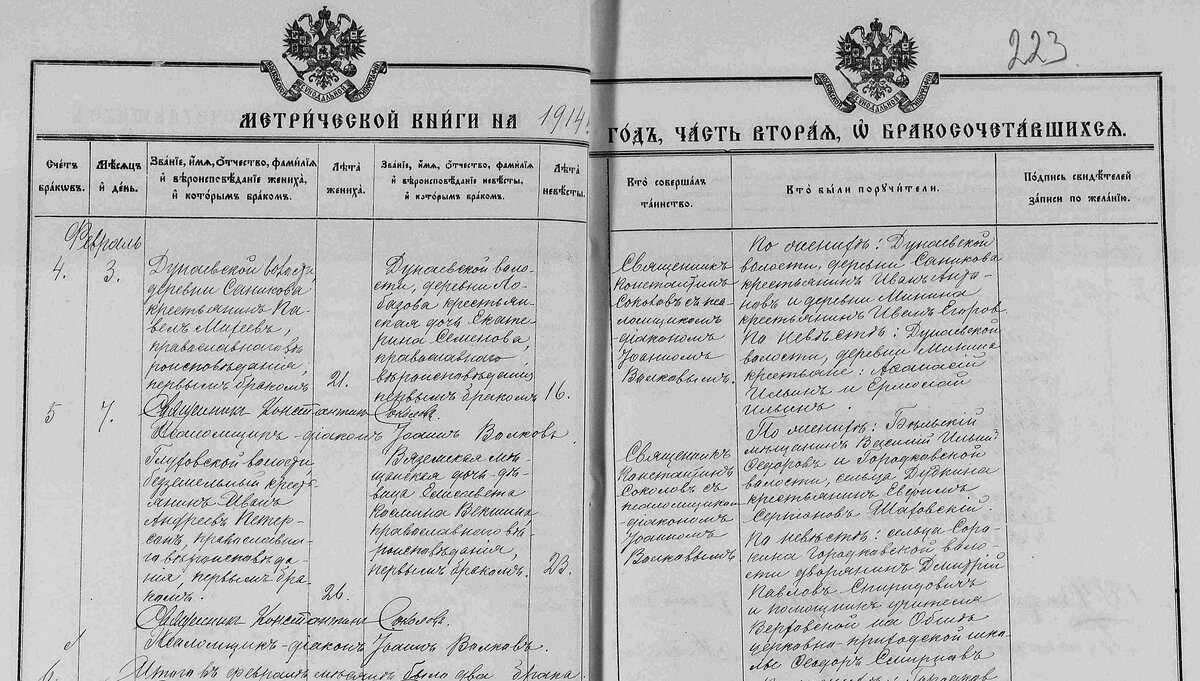 223.
МЕТРИ́ЧЕСКОЙ КНИ́ГИ НА 1914 г.
ГО́ДЪ, ЧА́СТЬ ВТОРА́Я, Ѿ БРАКОСОЧЕТА́ВШИХСЯ.
Счетъ браковъ.
Мѣсяцъ и день.
Званіе, имя, отчество, фамилія и вѣроисповѣданіе жениха, и которымъ бракомъ.
Лѣта жениха.
Званіе, имя, отчество, фамилія и вѣроисповѣданіе невѣсты, и которымъ бракомъ.
Лѣта невѣсты.
Кто совершалъ таинство.
Кто были поручители.
Подпись свидѣтелей записи по желанію.
Февраль
4.
3.
Дунаевской волости,
деревни Саникова
крестьянинъ Па-
велъ Михеевъ,
православнаго вѣ-
роисповѣданія,
первымъ бракомъ
21.
Дунаевской воло-
сти, деревни Ло-
базова крестьян-
ская дочь Екате-
рина Семенова,
православнаго
вѣроисповѣданія
первымъ бракомъ
16.
Священникъ
Константинъ
Соколовъ съ пса-
ломщикомъ
-діакономъ
Іоанномъ
Волковымъ.
По женихѣ: Дунаевской
волости, деревни Саникова
крестьянинъ Иванъ Анта-
новъ и деревни Минина
крестьянинъ Иванъ Егоровъ
По невѣстѣ: Дунаевской
волости, деревни Минина
крестьяне: Афанасій
Ильинъ и Ермолай
Ильинъ.
Священникъ Константинъ Соколовъ.
Псаломщикъ-діаконъ Іоаннъ Волковъ.
5
7.
Глуховской волости
безземельный кресть-
янинъ Иванъ
Андреевъ Петер-
сонъ, православна-
го вѣроисповѣда-
нія, первымъ бра-
комъ.
26.
Вяземская мѣ-
щанская дочь дѣ-
вица Елисавета
Косьмина Векшина
православнаго вѣ-
роисповѣданія,
первымъ бракомъ.
23.
Священникъ
Константинъ
Соколовъ съ
псаломщикомъ
-діакономъ
Іоанномъ
Волковымъ
По женихѣ: Бѣльскій
мѣщанинъ Василій Ильинъ
Федоровъ и Городковской
волости, сельца Дубкина
крестьянинъ Евфимъ
Шаховскій
По невѣстѣ: сельца Соро-
кина Городковской воло-
сти дворянинъ Димитрій
Павловъ Спиридовичъ
и помощникъ учителя
церковно-приходской шко-
лы Феодоръ Смирновъ
Священникъ Константинъ Соколовъ.
Псаломщикъ-діаконъ Іоаннъ Волковъ.
6.
Итого въ февралѣ мѣсяцѣ было два брака.